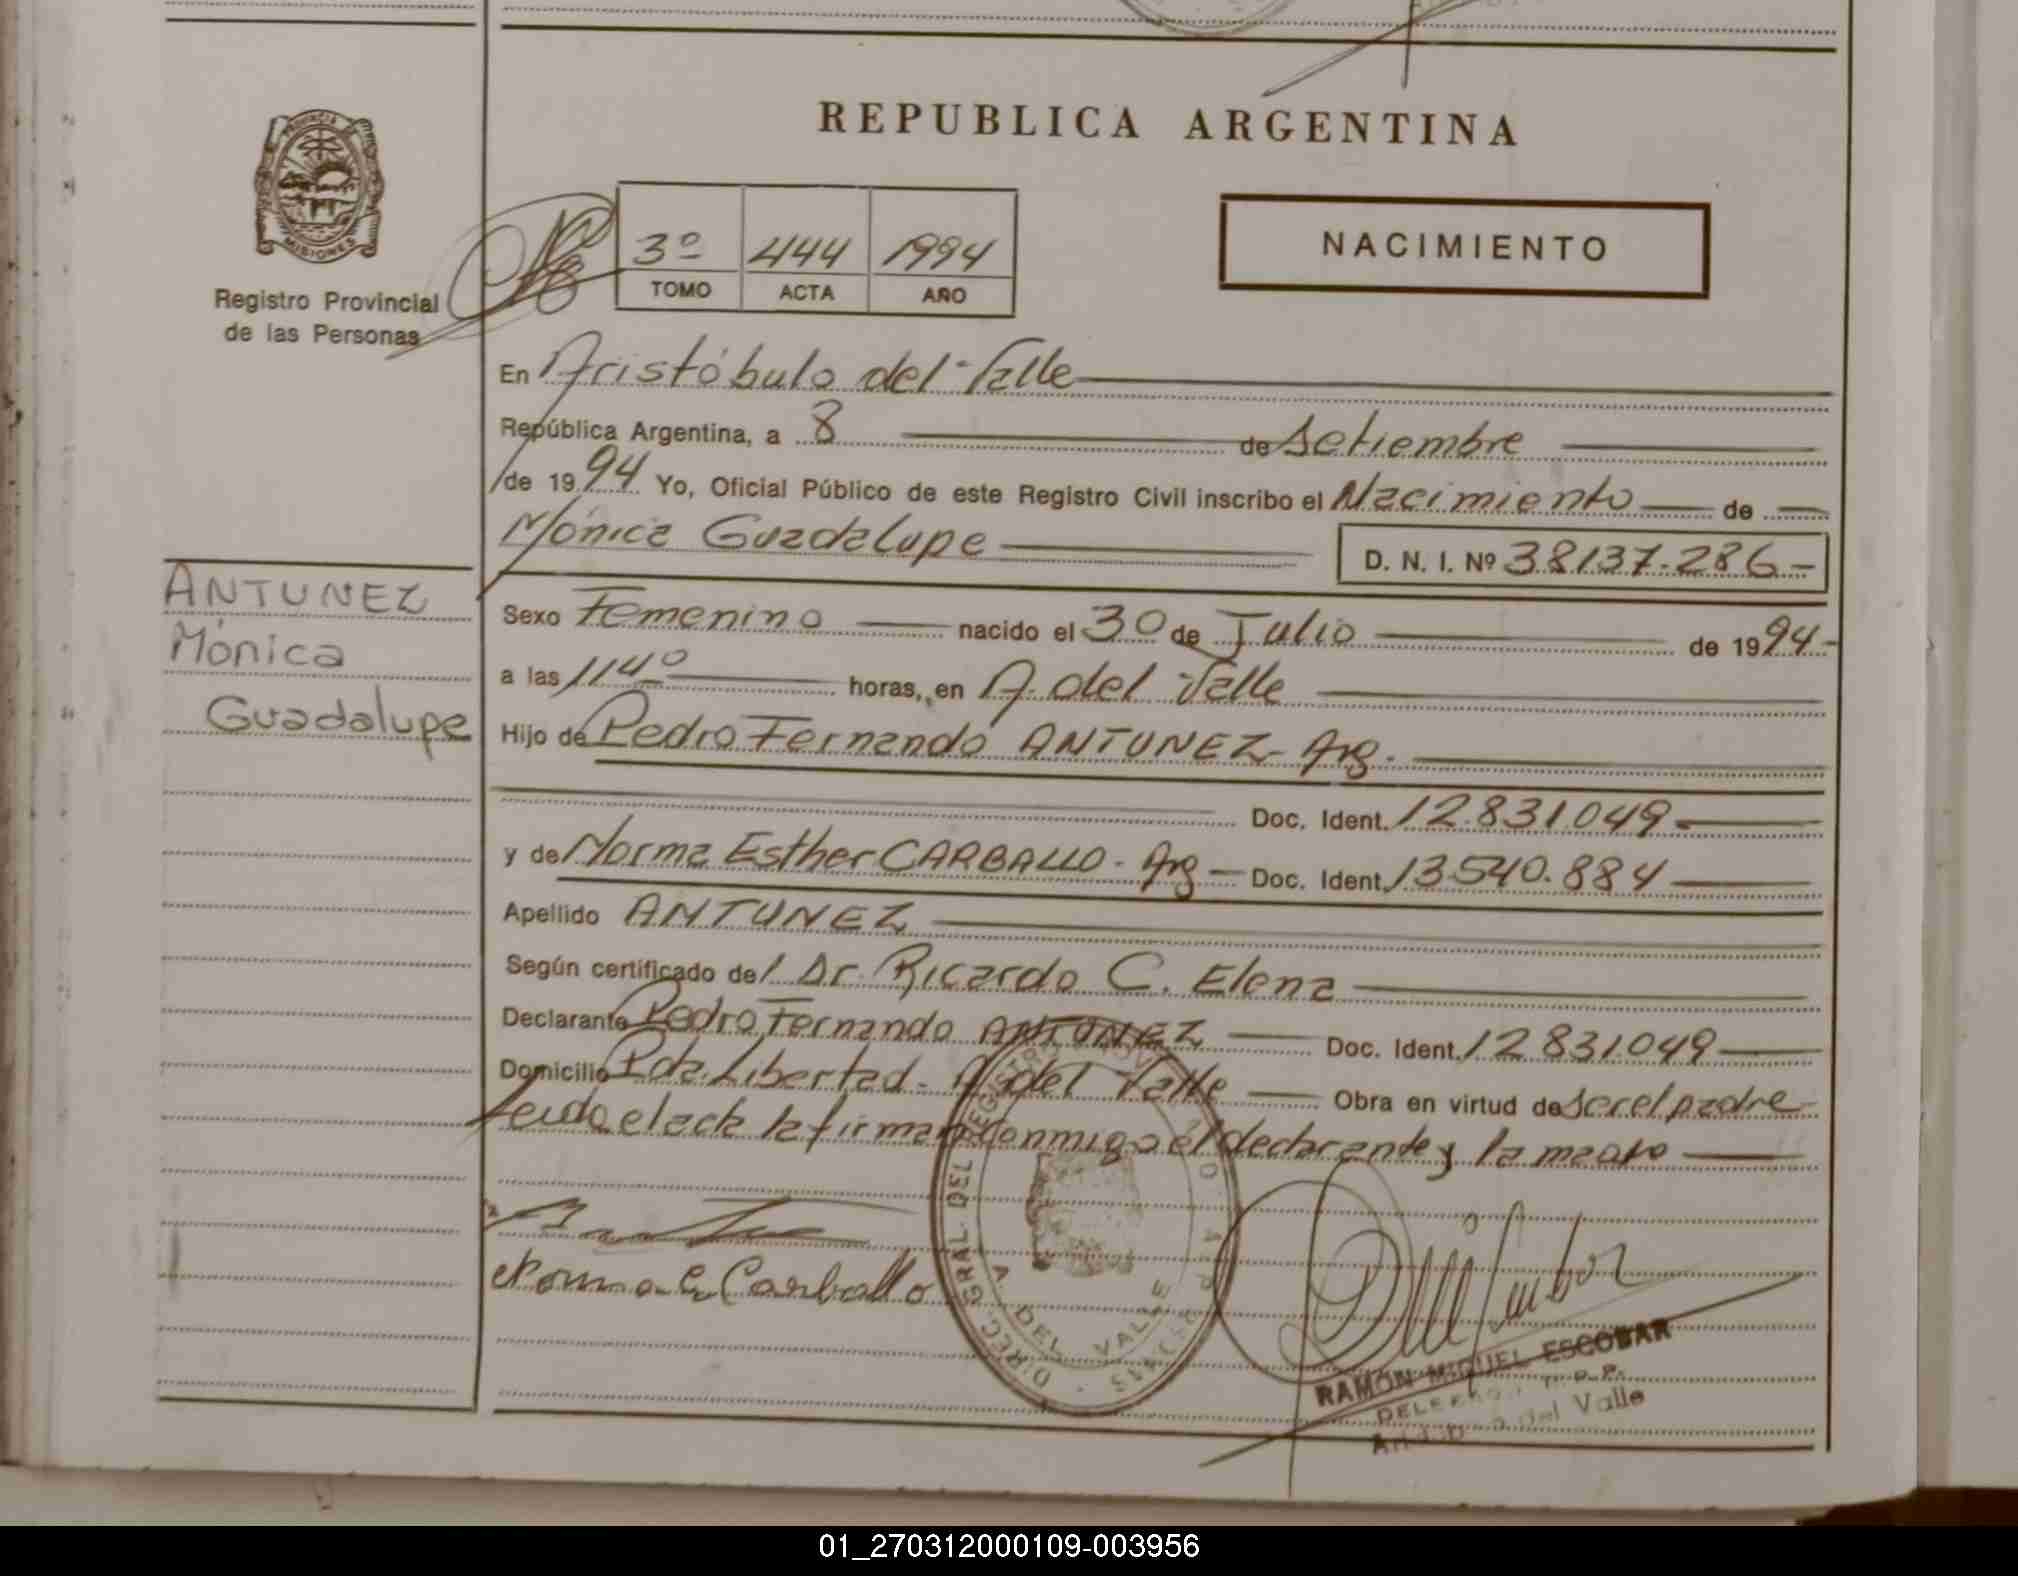 REPUBLICA ARGENTINA
PROVINCIA DE
MISIONES
Registro Provincial
de las Personas
3º 444 1994
TOMO ACTA AÑO
NACIMIENTO
En Aristóbulo del Valle
República Argentina, a 8 de Setiembre
de 1994 Yo, Oficial Público de este Registro Civil inscribo el Nacimiento de
Mónica Guadalupe D. N. I. Nº 38137.286
ANTUNEZ
Mónica
Guadalupe
Sexo Femenino nacido el 30 de Julio de 1994
a las 1140 horas, en A. del Valle
Hijo de Pedro Fernando ANTUNEZ - Arg.
Doc. Ident. 12.831.049
y de Norma Esther CARBALLO - Arg Doc. Ident. 13.540.884
Apellido ANTUNEZ
Según certificado del Dr. Ricardo C. Elena
Declarante Pedro Fernando ANTUNEZ Doc. Ident. 12831049
Domicilio Pda. Libertad - A del Valle Obra en virtud de ser el padre
Leida el acta la firman conmigo el declarante y la madre
Norma E Carballo
DIREC. GRAL. DEL REGISTRO
A. DEL VALLE
RAMON MIGUEL ESCOBAR
del Valle
01_270312000109-003956